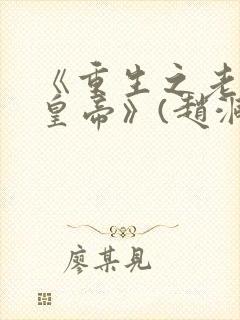 《重生之老
皇帝》(趙洞
廖某見